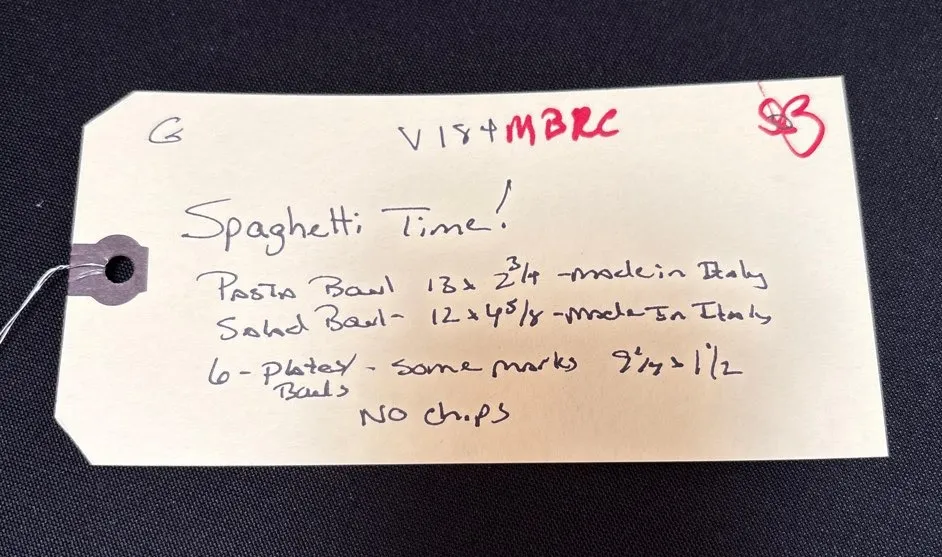 G
V184 MBRC
Spaghetti Time!
Pasta Bowl 13 x 2 3/4 - made in Italy
Salad Bowl - 12 x 4 5/8 - made In Italy
6 - plates/ - some marks x 1 1/2
Bowls
No chips